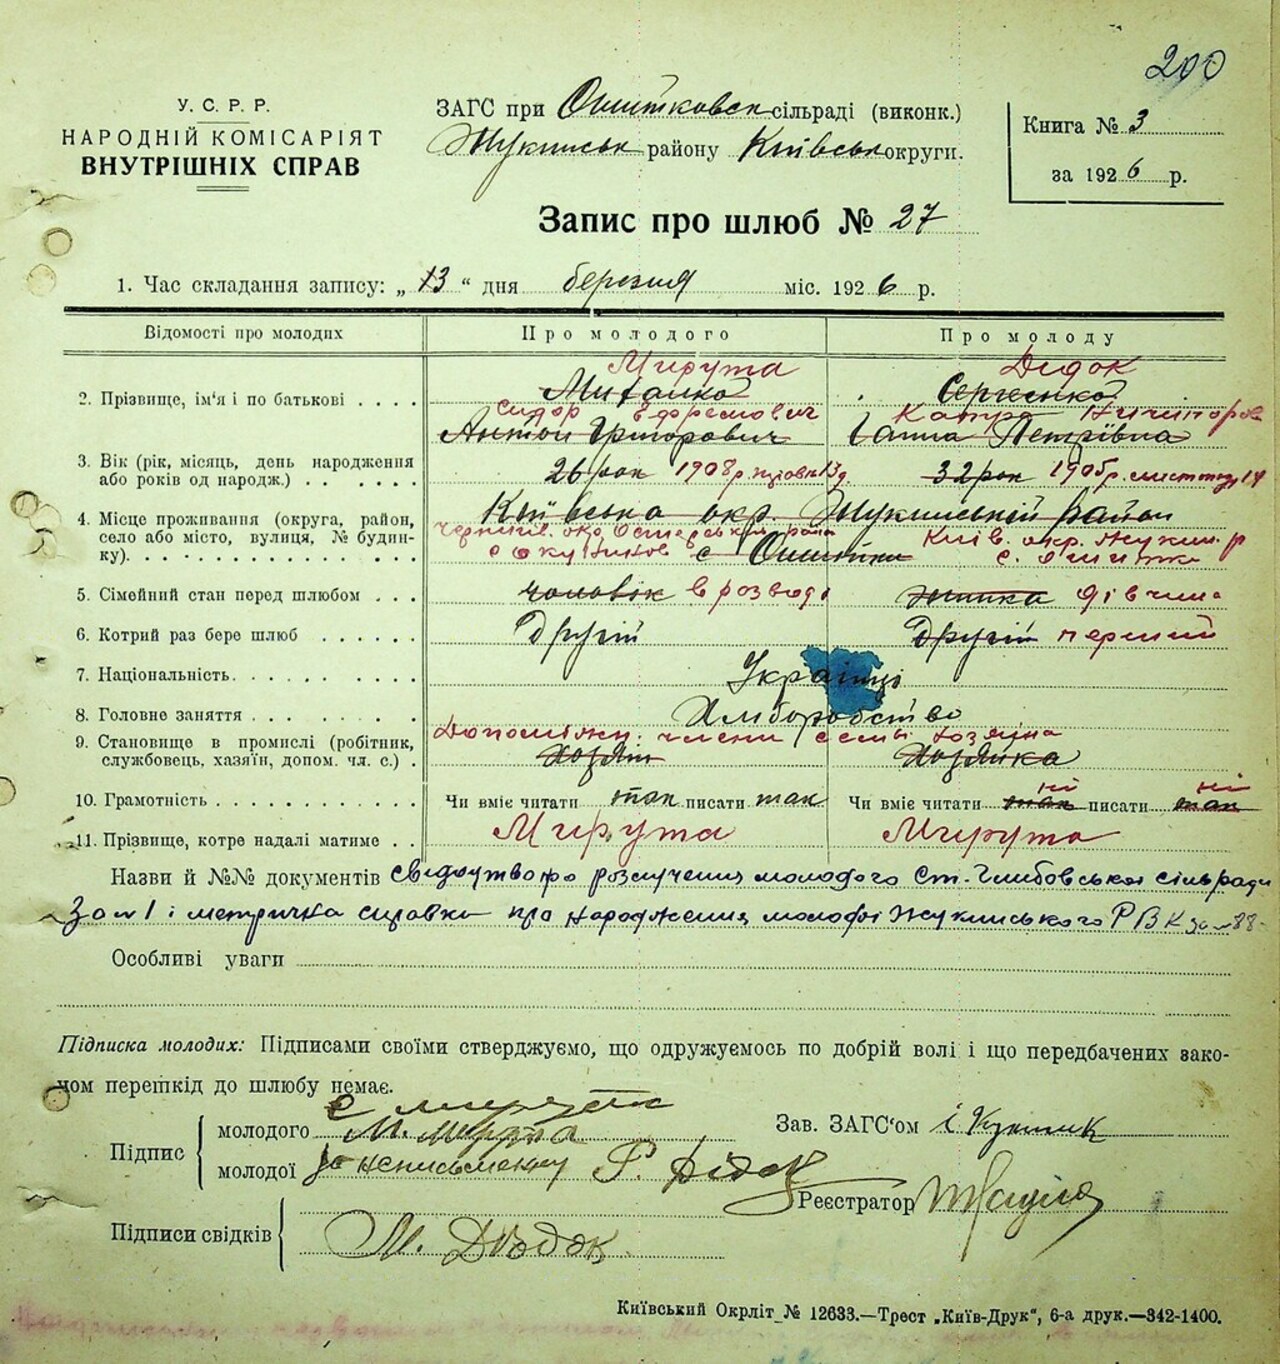 200
У. С. Р. Р.
НАРОДНІЙ КОМІСАРІЯТ
ВНУТРІШНІХ СПРАВ
ЗАГС при Ошитковск сільраді (виконк.)
Жукинськ району Київськ округи.
Книга № 3
за 1926 р.
Запис про шлюб № 27
1. Час складання запису: „ 13 “ дня березня міс. 1926 р.
Відомості про молодих
Про молодого
Про молоду
Мирута Дідок
2. Прізвище, ім'я і по батькові . . . . Михалко Сергієнко
Сидор Ефремович Катря Ничипоров
Антон Григорович Ганна Петрівна
3. Вік (рік, місяць, день народження або років од народж.) . . . . . .
26 рок 1908 р. 13 д. 32 рок 1905 р. листопад 14
4. Місце проживання (округа, район, село або місто, вулиця, № будинку). . . . . . . . . . . . . .
Київська окр. Жукинський район
Черніг. окр. Остерський район Київ. окр. Жукин. р
с. Ошитки с. Ошитки
5. Сімейний стан перед шлюбом . . . чоловік в розводі дівчина
6. Котрий раз бере шлюб . . . . . . Другій Другій перший
7. Національність. . . . . . . . . . Українці
8. Головне заняття . . . . . . . . Хліборобство
Допоміжн. члени семьі хозяїна
9. Становище в промислі (робітник, службовець, хазяїн, допом. чл. с.) .
Хозяїн Хозяйка
ні ні
10. Грамотність . . . . . . . . . . . Чи вміє читати так писати так Чи вміє читати так писати так
11. Прізвище, котре надалі матиме . . Мирута Мирута
Назви й №№ документів свідоцтво про розлучення молодого Ст.-Глибовської сільради
за № 1 і метрична справка про народження молодої Жукинського РВК за № 88
Особливі уваги
Підписка молодих: Підписами своїми стверджуємо, що одружуємось по добрій волі і що передбачених законом перешкід до шлюбу немає.
С Мирута
Підпис
молодого М. Мирута
молодої за неписьменну Г. Дідок
Зав. ЗАГС'ом
Реєстратор
Підписи свідків
М. Дідок
Київський Окрліт № 12633.—Трест „Київ-Друк“, 6-а друк.—342-1400.